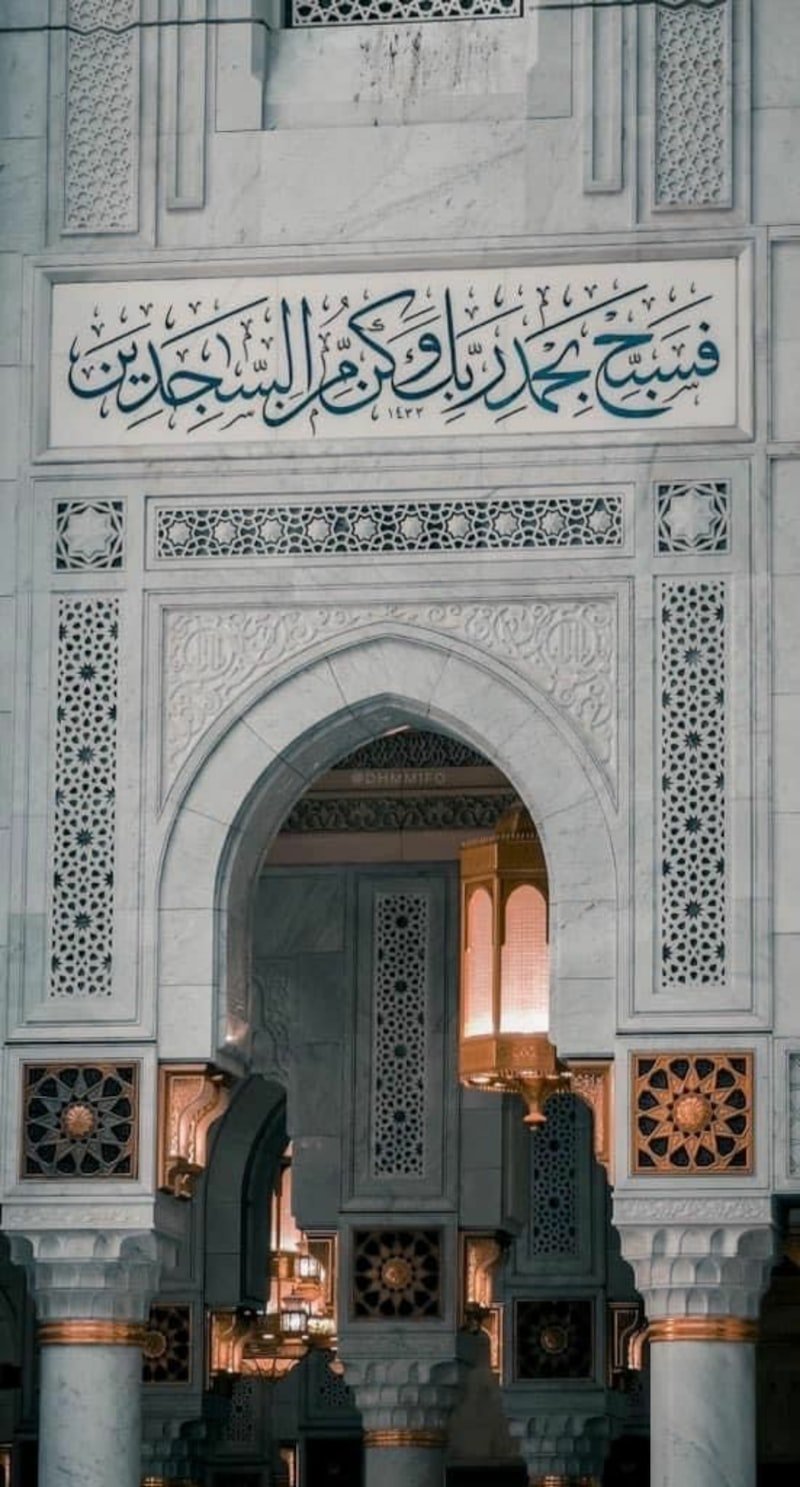 فَسَبِّحْ بِحَمْدِ رَبِّكَ وَكُن مِّنَ السَّاجِدِينَ
١٤٣٣
@DHMMIFO